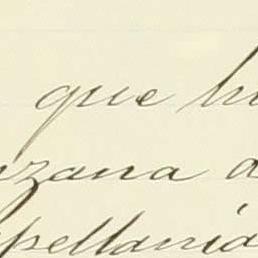 que hi
nzana d
pellanía